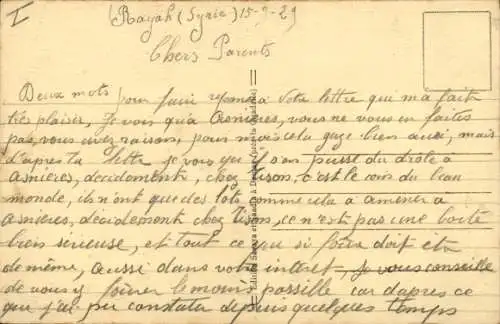 I
(Rayak (Syrie) 15-9-29
Chers Parents
Deux mots pour faire reponse a votre lettre qui m'a fait
très plaisir, Je vois qu'a Asnieres, vous ne vous en faites
pas, vous avez raison, pour moi cela gaze bien aussi, mais
d'apres ta lettre je vois qu'il s'en passe du drôle à
Asnieres, decidement, chez, c'est le coin du beau
monde, ils n'ont que des lots comme cela a amener a
Asnieres, decidement chez, ce n'est pas une boite
bien serieuse, et tout ce qu si doit etr
de même, aussi dans votre interet, Je vous conseille
de vous y le moins possible car d'apres ce
que j'ai pu constater depuis quelques temps